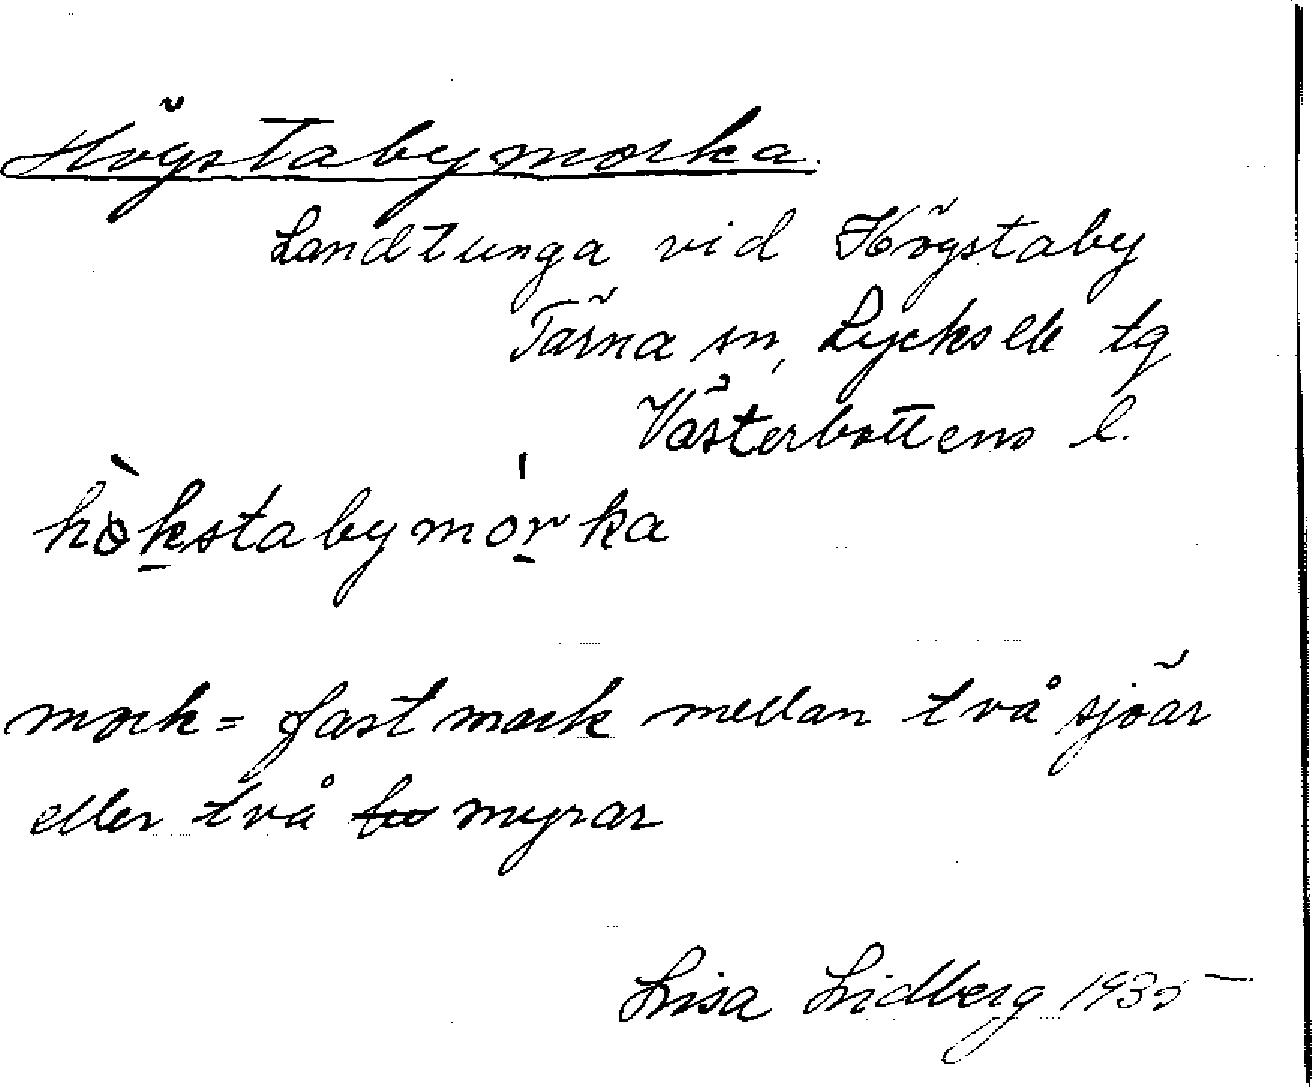 Högstabymorka.
Landtunga vid Högstaby
Tärna sn, Lycksele tg
Västerbottens l.
hòkstabymórka
mork = fast mark mellan två sjöar
eller två myrar
Lisa Lidberg 1935